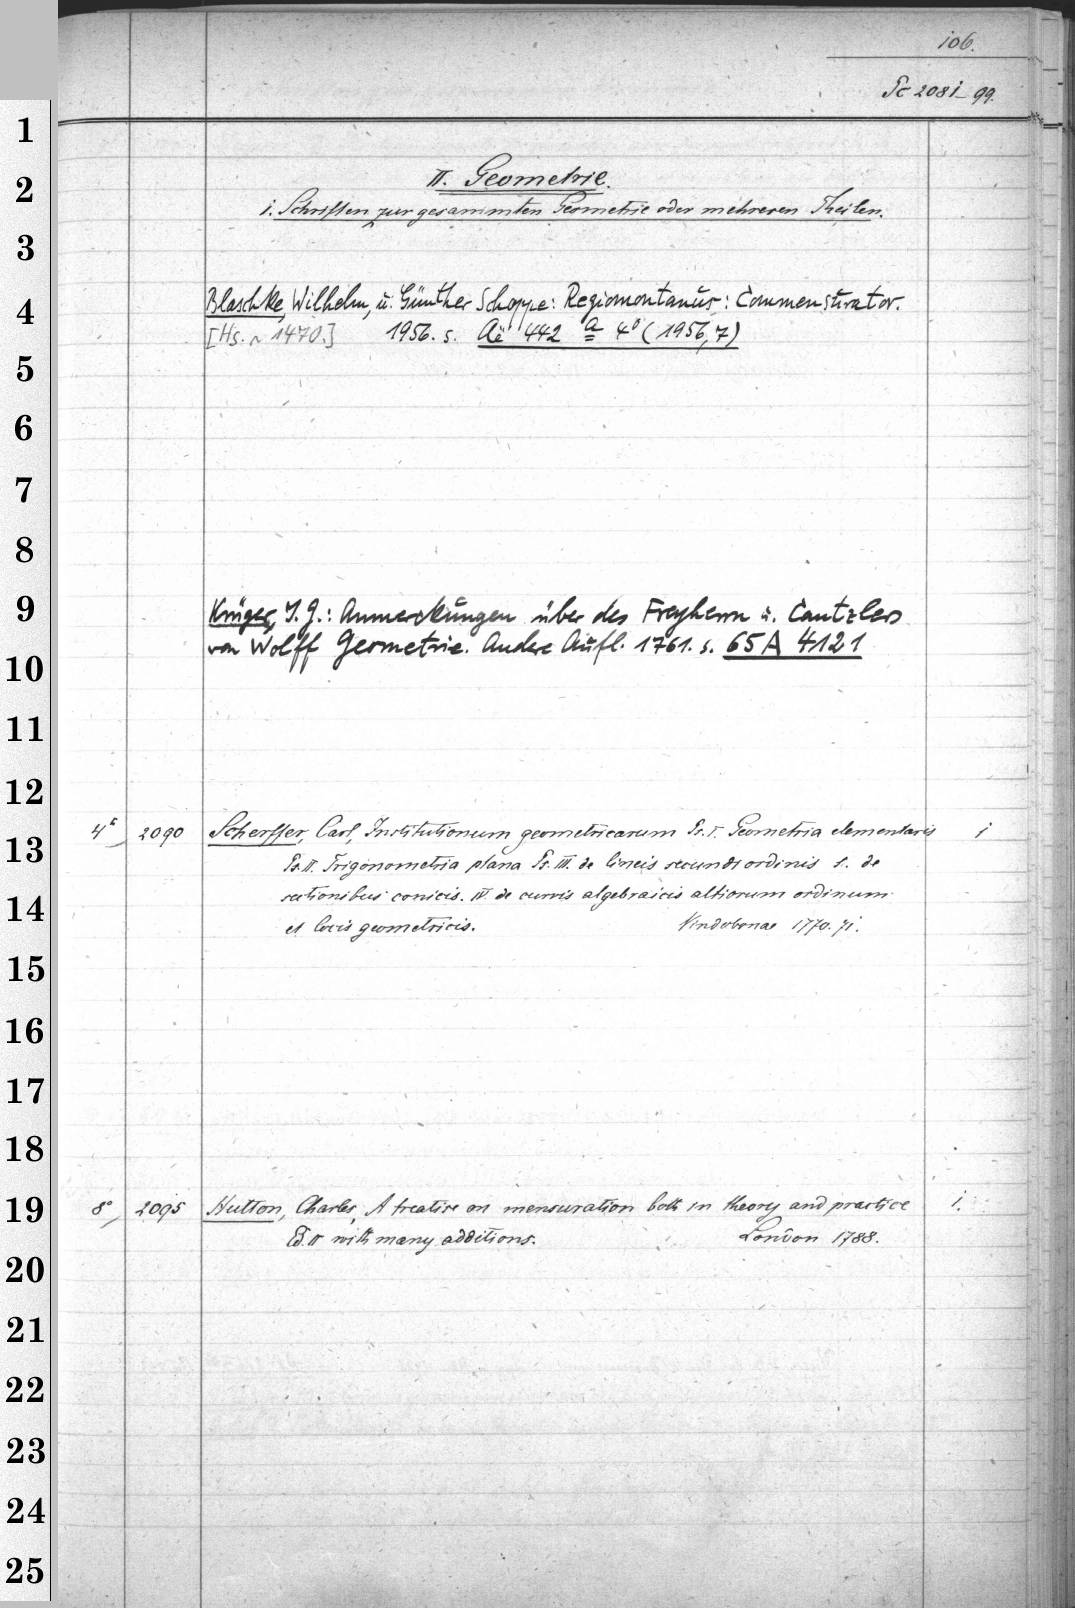 106.
Pc 2081–99.
1
2
3
4
5
6
7
8
9
10
11
12
13
14
15
16
17
18
19
20
21
22
23
24
25
II. Geometrie.
1. Schriften zur gesammten Geometrie oder mehreren Theilen.
Blaschke, Wilhelm, u. Günther Schoppe: Regiomontanus: Commensurator.
[Hs. ~ 1470.] 1956. s. Aë 442 a 4° (1956,7)
Krüger, J. G.: Anmerckungen über des Freyherrn u. Cantzlers
von Wolff Geometrie. Andere Aufl. 1761. s. 65 A 4121
4° 2090 Scherffer, Carl, Institutionum geometricarum Ps. I. Geometria elementaris 1
Ps. II. Trigonometria plana Ps. III. de lineis secundi ordinis s. de
sectionibus conicis. IV. de curvis algebraicis altiorum ordinum
et locis geometricis. Vindobonae 1770. 71.
8° 2095 Hutton, Charles, A treatise on mensuration both in theory and practice 1.
Ed. II with many additions. London 1788.